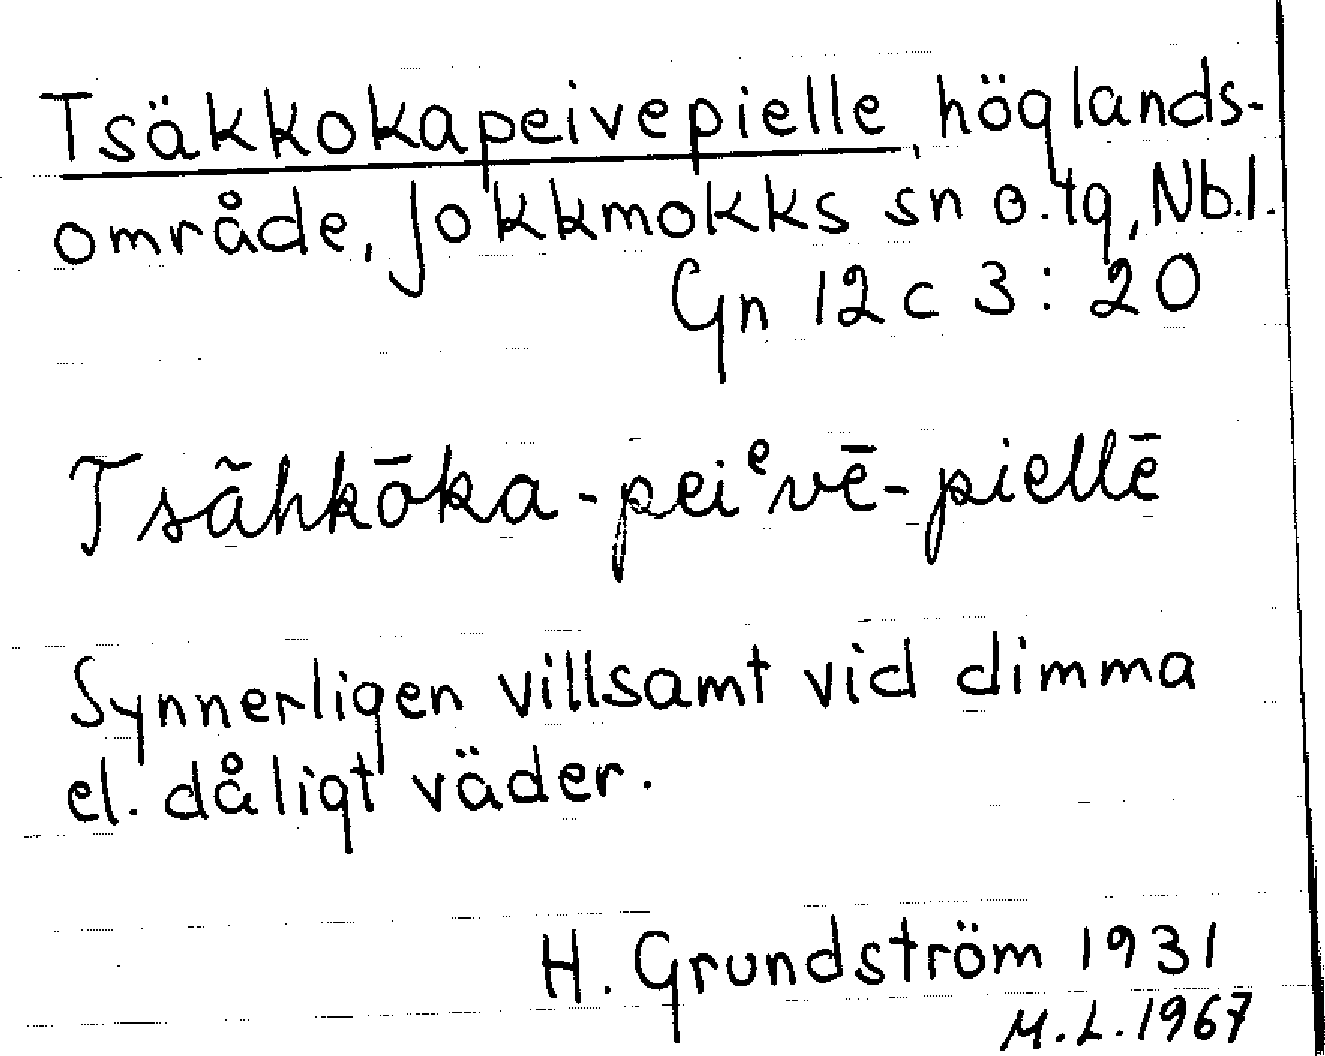 Tsäkkokapeivepielle, höglands-
område, Jokkmokks sn o. tg, Nb.l.
Gn 12 c 3 : 20
Tsãhkōka-peiᵉvē-piellē
Synnerligen villsamt vid dimma
el. dåligt väder.
H. Grundström 1931
M.L. 1967